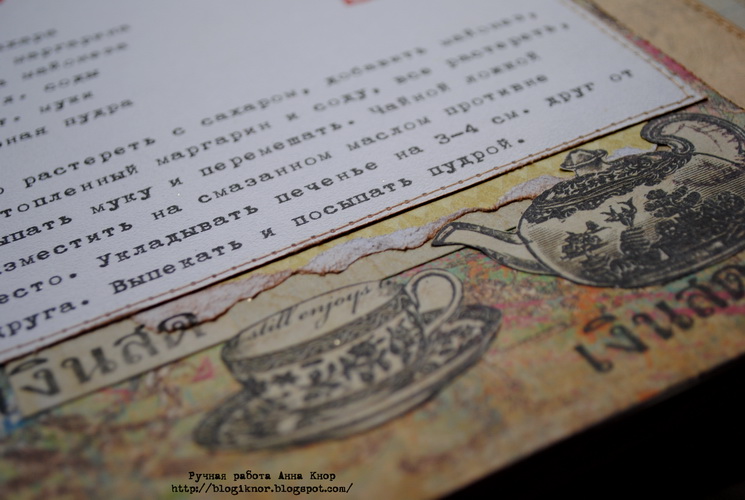 маргарина
майонеза
соды
муки
пудра
растереть с сахаром, добавить майонез,
топленный маргарин и соду, все растереть,
муку и перемешать. Чайной ложкой
на смазанном маслом противне
Укладывать печенье на 3-4 см. друг от
друга. Выпекать и посыпать пудрой.
still enjoys
เงินสด
เงินสด
Ручная работа Анна Кнор
http://blogiknor.blogspot.com/